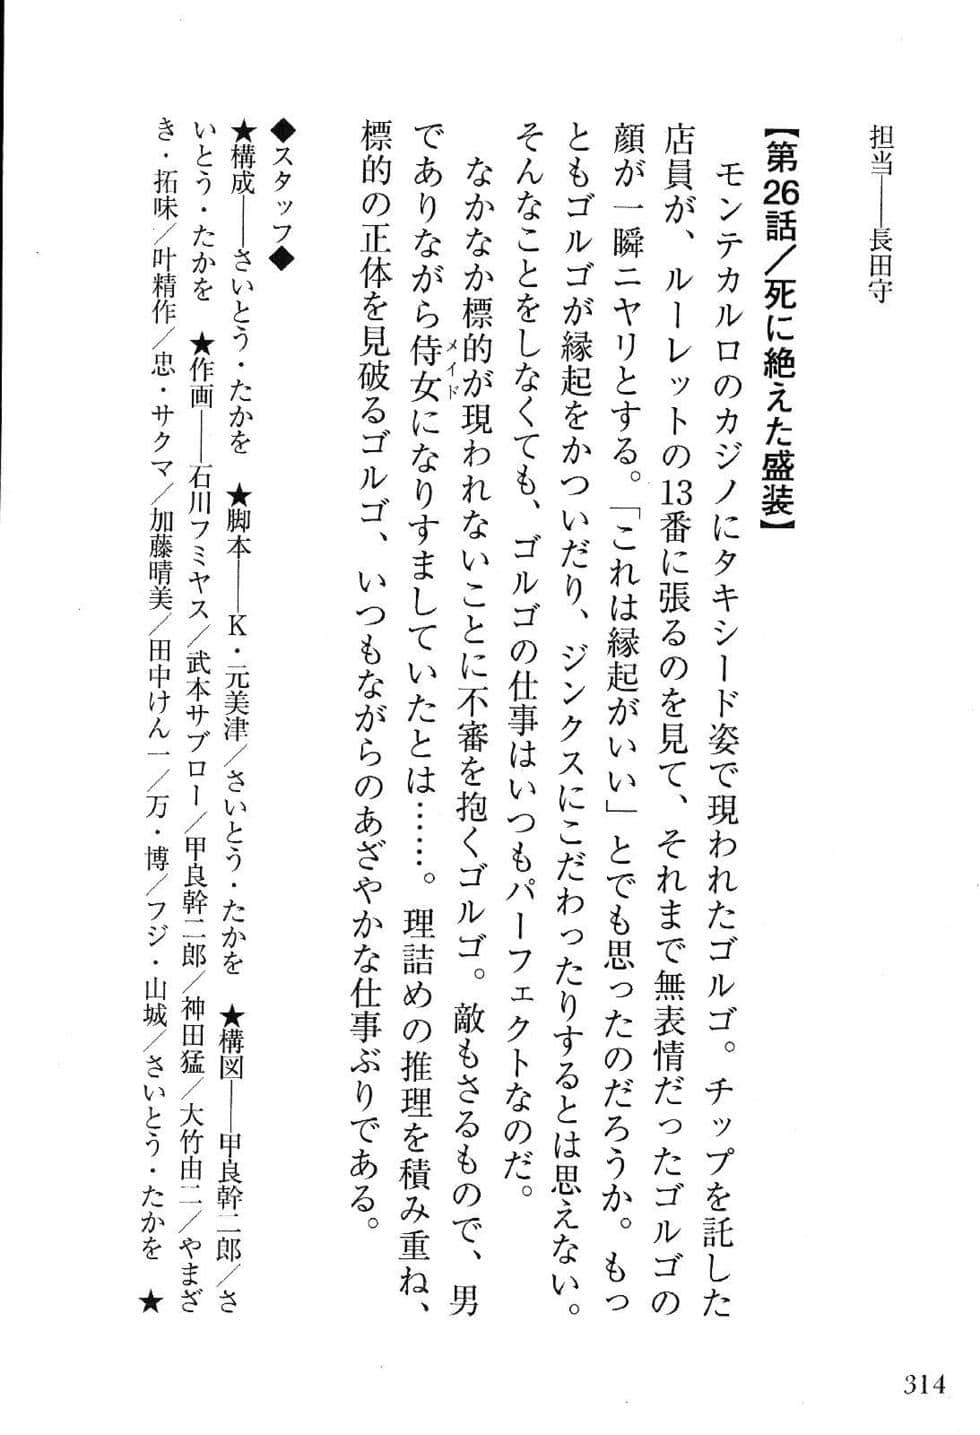 担当――長田守
【第26話／死に絶えた盛装】
モンテカルロのカジノにタキシード姿で現われたゴルゴ。チップを託した
店員が、ルーレットの13番に張るのを見て、それまで無表情だったゴルゴの
顔が一瞬ニヤリとする。「これは縁起がいい」とでも思ったのだろうか。もっ
ともゴルゴが縁起をかついだり、ジンクスにこだわったりするとは思えない。
そんなことをしなくても、ゴルゴの仕事はいつもパーフェクトなのだ。
なかなか標的が現われないことに不審を抱くゴルゴ。敵もさるもので、男
でありながら侍女になりすましていたとは……。理詰めの推理を積み重ね、
メイド
標的の正体を見破るゴルゴ、いつもながらのあざやかな仕事ぶりである。
◆スタッフ◆
★構成――さいとう・たかを　★脚本――K・元美津／さいとう・たかを　★構図――甲良幹二郎／さ
いとう・たかを　★作画――石川フミヤス／武本サブロー／甲良幹二郎／神田猛／大竹由二／やまざ
き・拓味／叶精作／忠・サクマ／加藤晴美／田中けん一／万・博／フジ・山城／さいとう・たかを　★
314